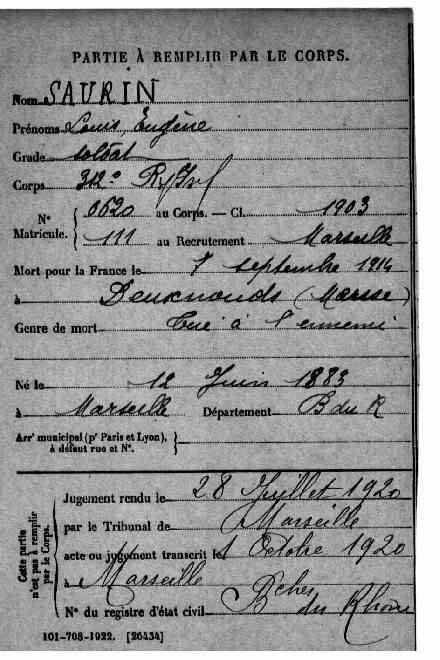 PARTIE À REMPLIR PAR LE CORPS.
Nom SAURIN
Prénoms Louis, Eugène
Grade soldat
Corps 312e R. Inf
N° Matricule. { 0620 au Corps. — Cl. 1903
111 au Recrutement Marseille
Mort pour la France le 7 septembre 1914
à Deuxnouds (Marsse)
Genre de mort Tué à l'ennemi
Né le 12 Juin 1883
à Marseille Département B du R
Arrt municipal (pr Paris et Lyon), à défaut rue et N°. }
Cette partie n'est pas à remplir par le Corps.
Jugement rendu le 28 Juillet 1920
par le Tribunal de Marseille
acte ou jugement transcrit le 1 Octobre 1920
à Marseille
N° du registre d'état civil Bches du Rhône
101-708-1922. [26434]